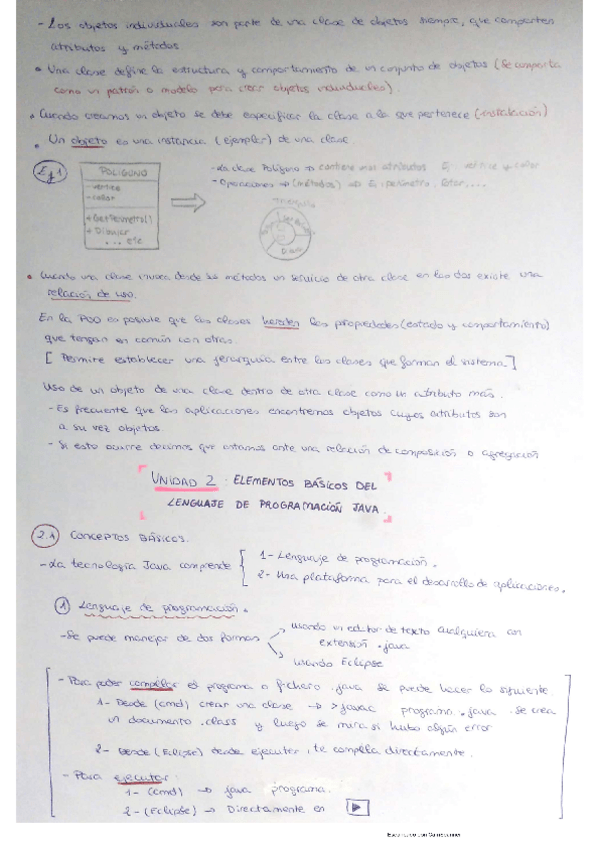 - Los objetos individuales son parte de una clase de objetos siempre, que comparten
atributos y métodos
• Una clase define la estructura y comportamiento de un conjunto de objetos (Se comporta
como un patrón o modelo para crear objetos individuales).
• Cuando creamos un objeto se debe especificar la clase a la que pertenece (instalación)
• Un objeto es una instancia (ejemplar) de una clase
Ej 1
POLIGONO
- vertice
- color
+ GetPerimetro()
+ Dibujar
... etc
- La clase Polígono → contiene unos atributos Ej: vertice y color
- Operaciones → (métodos) → Ej: perimetro, rotar, ...
• Cuando una clase invoca desde sus métodos un servicio de otra clase en las dos existe una
relación de uso.
En la POO es posible que las clases hereden las propiedades (estado y comportamiento)
que tengan en común con otras.
[ Permite establecer una jerarquía entre las clases que forman el sistema. ]
Uso de un objeto de una clase dentro de otra clase como un atributo más.
- Es frecuente que las aplicaciones encontremos objetos cuyos atributos son
a su vez objetos.
- Si esto ocurre decimos que estamos ante una relación de composición o agregación
UNIDAD 2 : ELEMENTOS BÁSICOS DEL
LENGUAJE DE PROGRAMACIÓN JAVA.
2.1 CONCEPTOS BÁSICOS.
- La tecnología Java comprende
1- Lenguaje de programación.
2- Una plataforma para el desarrollo de aplicaciones.
1 Lenguaje de programación.
- Se puede manejar de dos formas
usando un editor de texto cualquiera con
extensión .java
usando Eclipse
- Para poder compilar el programa o fichero .java se puede hacer lo siguiente.
1- Desde (cmd) crear una clase → > javac programa.java. Se crea
un documento .class y luego se mira si hubo algún error
2- Desde (Eclipse) donde ejecutar, te compila directamente.
- Para ejecutar:
1- (cmd) → java programa.
2- (Eclipse) → Directamente en
Escaneado con CamScanner